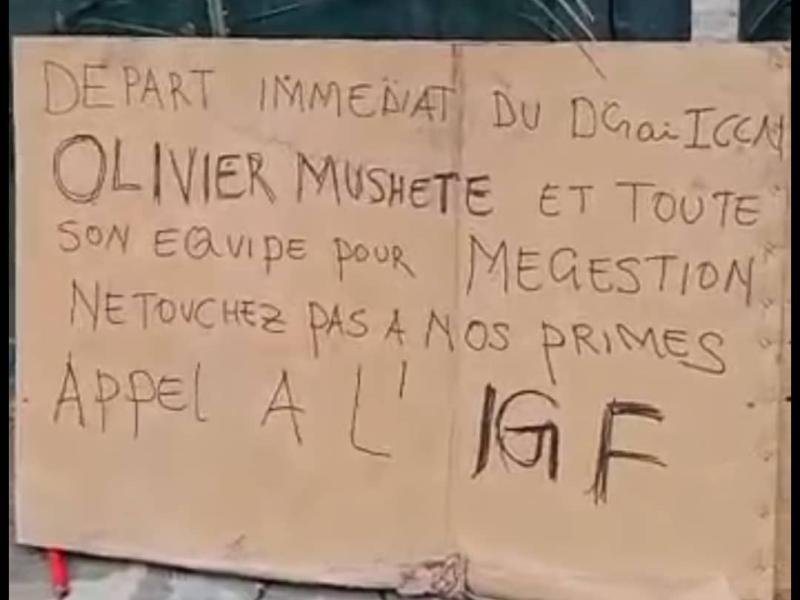 DEPART IMMEDIAT DU DGai ICCN
OLIVIER MUSHETE ET TOUTE
SON EQUIPE POUR MEGESTION
NE TOUCHEZ PAS A NOS PRIMES
APPEL A L' IGF